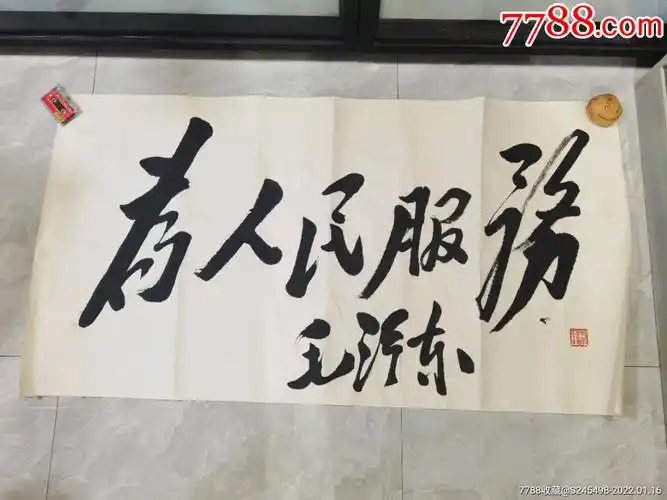 7788.com
為人民服務
毛泽东
7788收藏@S245498-2022.01.16